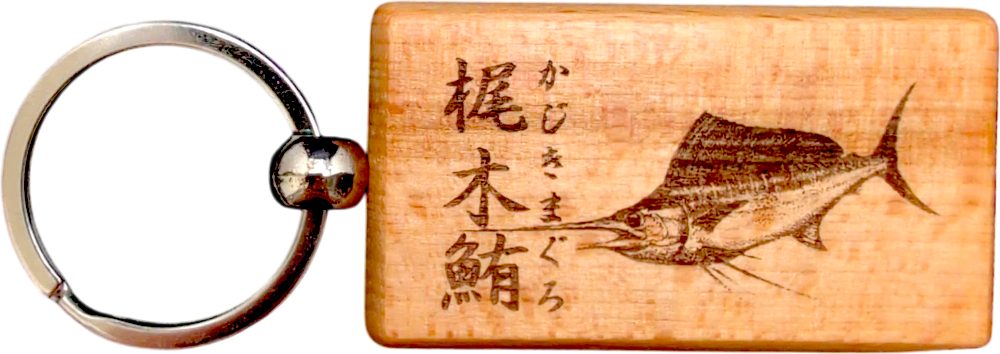 梶木鮪
かじきまぐろ